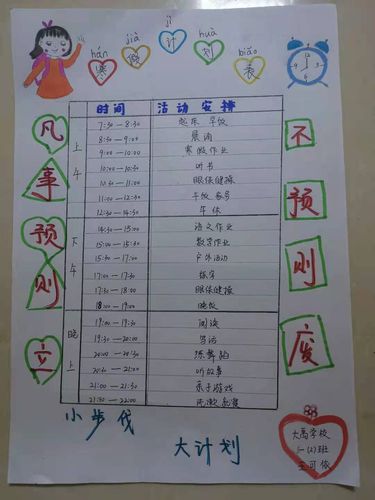 hán jià jì huà biǎo
寒假计划表
凡事预则立
不预则废
时间 活动安排
上午
7:30—8:30 起床 早饭
8:30—9:00 晨诵
9:00—10:00 寒假作业
10:00—10:30 听书
10:30—11:00 眼保健操
11:00—12:30 午饭 家务
12:30—14:30 午休
下午
14:30—15:00 语文作业
15:00—15:30 数学作业
15:30—17:00 户外活动
17:00—17:30 练字
17:30—18:00 眼保健操
18:00—19:00 晚饭
晚上
19:00—19:30 阅读
19:30—20:00 写话
20:00—20:30 练舞蹈
20:30—21:00 听故事
21:00—21:30 亲子游戏
21:30—22:00 洗漱
小步伐
大计划
大高学校
一(2)班
王可依